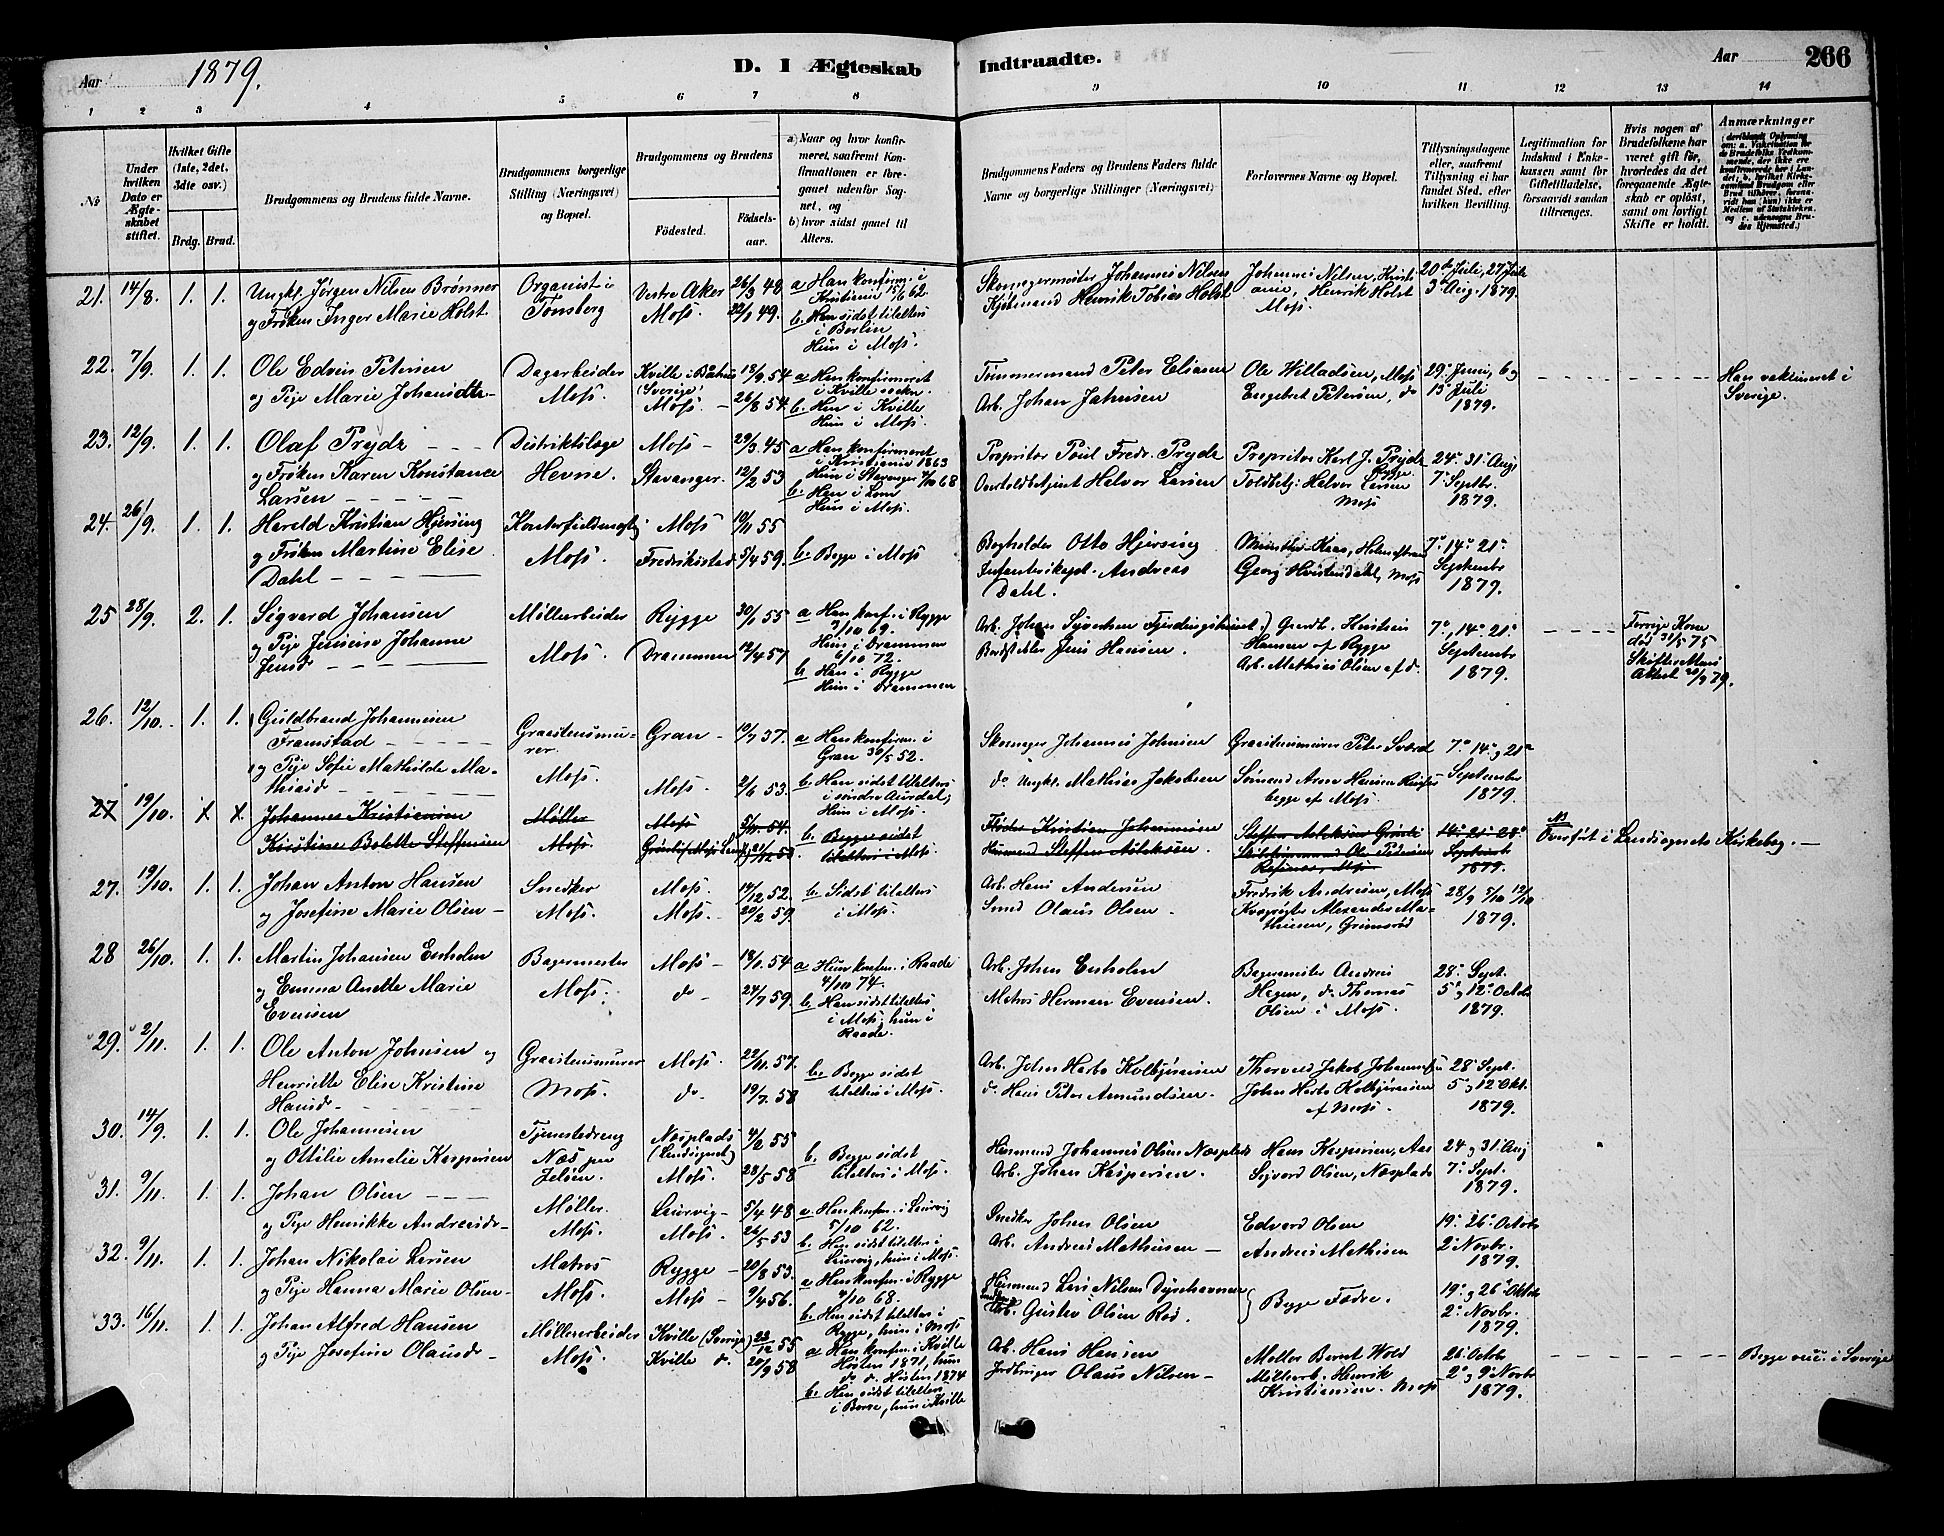 Aar 1879.
D. I Ægteskab Indtraadte.
Aar 266
1 2 3 4 5 6 7 8 9 10 11 12 13 14
No
Under hvilken Dato er Ægteskabet stiftet.
Hvilket Gifte (1ste, 2det, 3dte osv.)
Brdg. Brud.
Brudgommens og Brudens fulde Navne.
Brudgommens borgerlige Stilling (Næringsvei) og Bopæl.
Brudgommens og Brudens
Födested. Födsels-aar.
a) Naar og hvor konfirmeret, saafremt Konfirmationen er foregaaet udenfor Sognet, og
b) hvor sidst gaaet til Alters.
Brudgommens Faders og Brudens Faders fulde Navne og borgerlige Stillinger (Næringsvei)
Forlovernes Navne og Bopæl.
Tillysningsdagene eller, saafremt Tillysning ei har fundet Sted, efter hvilken Bevilling.
Legitimation for Indskud i Enkekassen samt for Giftetilladelse, forsaavidt saadan tiltrænges.
Hvis nogen af Brudefolkene har været gift før, hvorledes da det foregaaende Ægteskab er oplöst, samt om lovligt Skifte er holdt.
Anmærkninger
21. 14/8. 1. 1. Ungkl. Jørgen Nilsen Brønner Organist i Vestre Aker 26/3 48 a Han konfirm. i Skomagermester Johannes Nilsen Johannes Nilsen, Kristi- 20de Juli, 27 Juli
og Frøken Inger Marie Holst Tønsberg Moss. 22/1 49. Kristiania 15/6 62. Kjøbmand Henrik Tobias Holst ania, Henrik Holst 3die Aug. 1879.
b. Han sidst tilalters Moss.
i Berlin
Hun i Moss.
22. 7/9. 1. 1. Ole Edvin Petersen Dagarbeider Kville i Båhus 18/9 54 a Han konfirmeret Tømmermand Peter Eliasen Ole Willadsen, Moss 29. Juni, 6 og Han vakcineret i
og Pige Marie Johansdtr Moss. (Sverige) i Kville sokn. Arb. Johan Jahnsen Engebret Petersen, do 13. Juli Sverige.
Moss. 26/8 54. b. Han i Kville 1879.
Hun i Moss.
23. 12/9. 1. 1. Olaf Prydz Distriktslæge Moss 29/3 45 a Han konfirmeret Propritær Poul Fredr. Prydz Propritær Karl J. Prydz 24. 31. Aug
og Frøken Karen Konstance Hevne. Stavanger. 12/2 53 i Kristiania 1863 Overtoldbetjent Halvor Larsen Rygge 7. Septbr.
Larsen Hun i Stavanger 68 Toldbetj. Halvor Larsen 1879.
b. Han i Lom Moss
Hun i Moss.
24. 26/9. 1. 1. Harald Kristian Hjersing Moss 55
og Frøken Martine Elise Moss. Fredrikstad 5/4 59. b. Begge i Moss Bogholder Otto Hjersing 7. 14. 21.
Dahl Andreas Georg Hvistendahl, Moss September
Dahl. 1879.
25 28/9. 2. 1. Sigvard Johansen Møllearbeider Rygge 30/1 55 a Han konf. i Rygge Arb. Johan Syversen Gaardb. Kristian 7., 14. 21. Forrige Kone
og Pige Jensine Johanne Moss. Drammen 12/4 57. 3/10 69. Jens Hansen. Hansen af Rygge September død 31/5 75
Jensd. Hun i Drammen Arb. Mathias Olsen af do. 1879.
6/10 72.
b. Han i Rygge
Hun i Drammen
26. 12/10. 1. 1. Guldbrand Johannesen Graastensmu- Gran 37. a Han konfirm. i Skomager Johannes Johnsen Graastensmurer Peter Sværd 7. 14. og 21.
Framstad rer. Gran 30/5 52. do Ungkl. Mathias Jakobsen Sømand Arne Hansen September
og Pige Sofie Mathilde Ma- Moss. Moss. 2/6 53. b. Han sidst tilalters begge af Moss. 1879.
thiasd. i søndre Aurdal,
Hun i Moss.
27 19/10. Johannes Kristiansen Møller Moss 54. b. Begge sidst Kristian Johannesen Steffen Aslaksen 14. 21. 28. Overført i Landsognets Kirkebog.
Kirstine Bolette Steffensen Moss. tilalters i Moss. Husmand Steffen Aslaksen. Septembr 1879.
27. 19/10. 1. 1. Johan Anton Hansen Snedker Moss. 14/12 52. b. Sidst tilalters Arb. Hans Andersen Fredrik Andresen, Moss 28/9 5/10 12/10
og Josefine Marie Olsen Moss. Moss. 20/2 59. i Moss. Smed Olaus Olsen. Alexander Ma- 1879.
thiesen, Grimsrød
28 26/10. 1. 1. Martin Johansen Enholm Bagermester Moss 18/1 54 a Hun konfm. i Raade Arb. Johan Enholm Bagermester Andreas 28. Sept.
og Emma Anette Marie Moss. do 24/7 59. 4/10 74. Matros Herman Evensen. Hagen, do Thomas 5. og 12. Octbr
Evensen b. Han sidst tilalters Olsen i Moss. 1879.
i Moss, hun i
Raade.
29. 2/11. 1. 1. Ole Anton Johnsen og Graastensmurer Moss. 22/11 57. b. Begge sidst Arb. John Harbo Kolbjørnsen Thorvald Jakob Johannesen 28. Sept.
Henriette Elise Kristine Moss. do. 19/7 58 tilalters i Moss. do. Hans Peter Amundsen. John Harbo Kolbjørnsen 5. og 12. Okt.
Hansd. af Moss. 1879.
30. 14/9. 1. 1. Ole Johannesen Tjenestedreng Næsplads 4/2 55 b. Begge sidst Husmand Johannes Olsen Næsplads Hans Kaspersen, Aas 24. og 31. Aug
og Ottilie Amalie Kaspersen Næs paa (Landsognet) tilalters i Moss. Arb. Johan Kaspersen. Sigvard Olsen, Næsplads 7. Sept.
Jeløen. Moss. 28/5 58 1879.
31. 9/11. 1. 1. Johan Olsen Møller. Laurvig 5/4 48 a Han konfm. i Laurvig Snedker Johan Olsen Edvard Olsen 19. 26. Octobr
og Pige Henrikke Andreasdr. Moss. Moss. 26/5 53 5/10 62. Arb. Andreas Mathisen Andreas Mathisen 2. Novbr.
b. Han sidst tilalters i 1879.
Laurvig, hun i Moss.
32. 9/11. 1. 1. Johan Nikolai Larsen Matros Rygge 20/8 53. a Han konfm. i Rygge Husmand Lars Nilsen Dyrehavnen Begge Fædre. 19. og 26. Oktob
og Pige Hanna Marie Olsen Moss. Moss 9/4 56. 4/10 68. Gustav Olsen Rød 2. Novbr.
b. Han sidst tilalters i 1879.
Rygge, hun i Moss
33. 16/11. 1. 1. Johan Alfred Hansen Møllerarbeider Kville (Sverige) 23/12 55 a Han konfm. i Kville Arb. Hans Hansen Møller Bernt Wold 26. Octbr Begge vacc. i Sverige
og Pige Josefine Olausdr. Moss. Kville do. 20/9 58 Høsten 1871, hun Jordbruger Olaus Nilsen Møllerarb. Henrik 2. og 9. Novbr
do do. Høsten 1874 Kristiansen. Moss 1879.
b. Han sidst tilalters
i Borre, hun i Kville